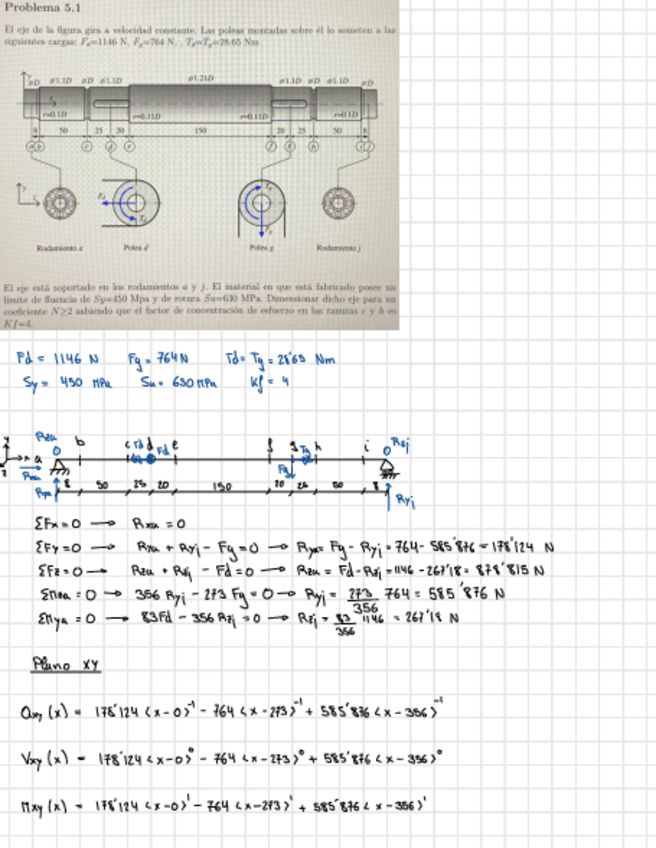 Problema 5.1
El eje de la figura gira a velocidad constante. Las poleas montadas sobre él lo someten a las
siguientes cargas: Fd=1146 N, Fg=764 N, , Td=Tg=28.65 Nm
øD ø1.1D øD ø1.1D ø1.21D ø1.1D øD ø1.1D øD
r=0.1D r=0.11D r=0.11D r=0.1D
8 50 25 20 150 20 25 50 8
a b c d e f g h i j
Fd Td Tg Fg
Rodamiento a Polea d Polea g Rodamiento j
El eje está soportado en los rodamientos a y j. El material en que está fabricado posee un
límite de fluencia de Sy=450 Mpa y de rotura Su=630 MPa. Dimensionar dicho eje para un
coeficiente N≥2 sabiendo que el factor de concentración de esfuerzo en las ranuras c y h es
Kf=4.
Fd = 1146 N Fg = 764 N Td = Tg = 28'65 Nm
Sy = 450 MPa Su = 630 MPa Kf = 4
Rza b c Td d Fd e f g Tg h i Rzj
x a
Rxa
Rya 8 50 25 20 150 20 25 50 8 Ryj
Fg
ΣFx = 0 → Rxa = 0
ΣFy = 0 → Rya + Ryj - Fg = 0 → Rya = Fg - Ryj = 764 - 585'876 = 178'124 N
ΣFz = 0 → Rza + Rzj - Fd = 0 → Rza = Fd - Rzj = 1146 - 267'18 = 878'815 N
ΣMza = 0 → 356 Ryj - 273 Fg = 0 → Ryj = 273/356 764 = 585'876 N
ΣMya = 0 → 83Fd - 356 Rzj = 0 → Rzj = 83/356 1146 = 267'18 N
Plano XY
Qxy (x) = 178'124 <x-0>⁻¹ - 764 <x-273>⁻¹ + 585'876 <x-356>⁻¹
Vxy (x) = 178'124 <x-0>⁰ - 764 <x-273>⁰ + 585'876 <x-356>⁰
Mxy (x) = 178'124 <x-0>¹ - 764 <x-273>¹ + 585'876 <x-356>¹